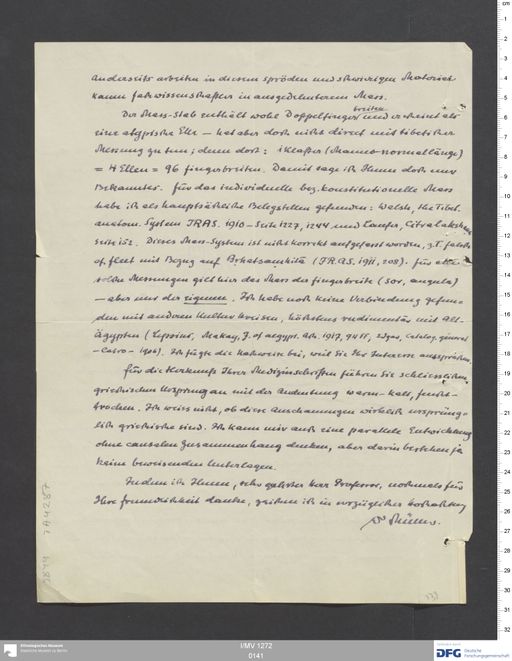 anderseits arbeiten in diesem spröden und schwierigen Material
kaum Fachwissenschafter in ausgedehnterem Mass.
Der Mass-Stab enthält wohl Doppelfingerbreiten und erscheint als
eine atypische Elle — hat aber doch nichts direct mit tibetischer
Messung zu tun; denn dort: 1 Klafter (Mannes-normallänge)
= 4 Ellen = 96 Fingerbreiten. Damit sage ich Ihnen doch nur
Bekanntes. Für das individuelle bez. konstitutionelle Mass
habe ich als hauptsächliche Belegstellen gefunden: Walsh, the Tibet.
anatom. System JRAS. 1910 – Seite 1227, 1244 und Laufer, Citralakshana
Seite 152. Dieses Mass-System ist nicht korrekt aufgefasst worden, z.T. falsch
cf. Fleet mit Bezug auf Brhatsamhitā (JRAS. 1911, 208). Für alle
solche Messungen gilt hier das Mass der Fingerbreite (sor, angula)
— aber nur der eigenen. Ich habe noch keine Verbindung gefun-
den mit anderen Kulturkreisen, höchstens rudimentär mit Alt-
Ägypten (Lepsius, Makay, J. of aegypt. Ar. 1917, Catalog general
– Cairo – 1906). Ich fügte die Hinweise bei, weil Sie Ihr Interesse aussprachen.
Für die Herkunft Ihrer Medizinschriften führen Sie schliesslichen
griechischen Ursprung an mit der Andeutung warm-kalt, feucht-
trocken. Ich weiss nicht, ob diese Anschauungen wirklich ursprüng-
lich griechische sind. Ich kann mir auch eine parallele Entwicklung
ohne causalen Zusammenhang denken, aber darin bestehen ja
keine beweisenden Unterlagen.
Indem ich Ihnen, sehr geehrter Herr Professor, nochmals für
Ihre Freundlichkeit danke, zeichne ich in vorzüglicher Hochachtung
I/MV 1272
0141
Ethnologisches Museum
Staatliche Museen zu Berlin
DFG Deutsche
Forschungsgemeinschaft
cm
1
2
3
4
5
6
7
8
9
10
11
12
13
14
15
16
17
18
19
20
21
22
23
24
25
26
27
28
29
30
31
32